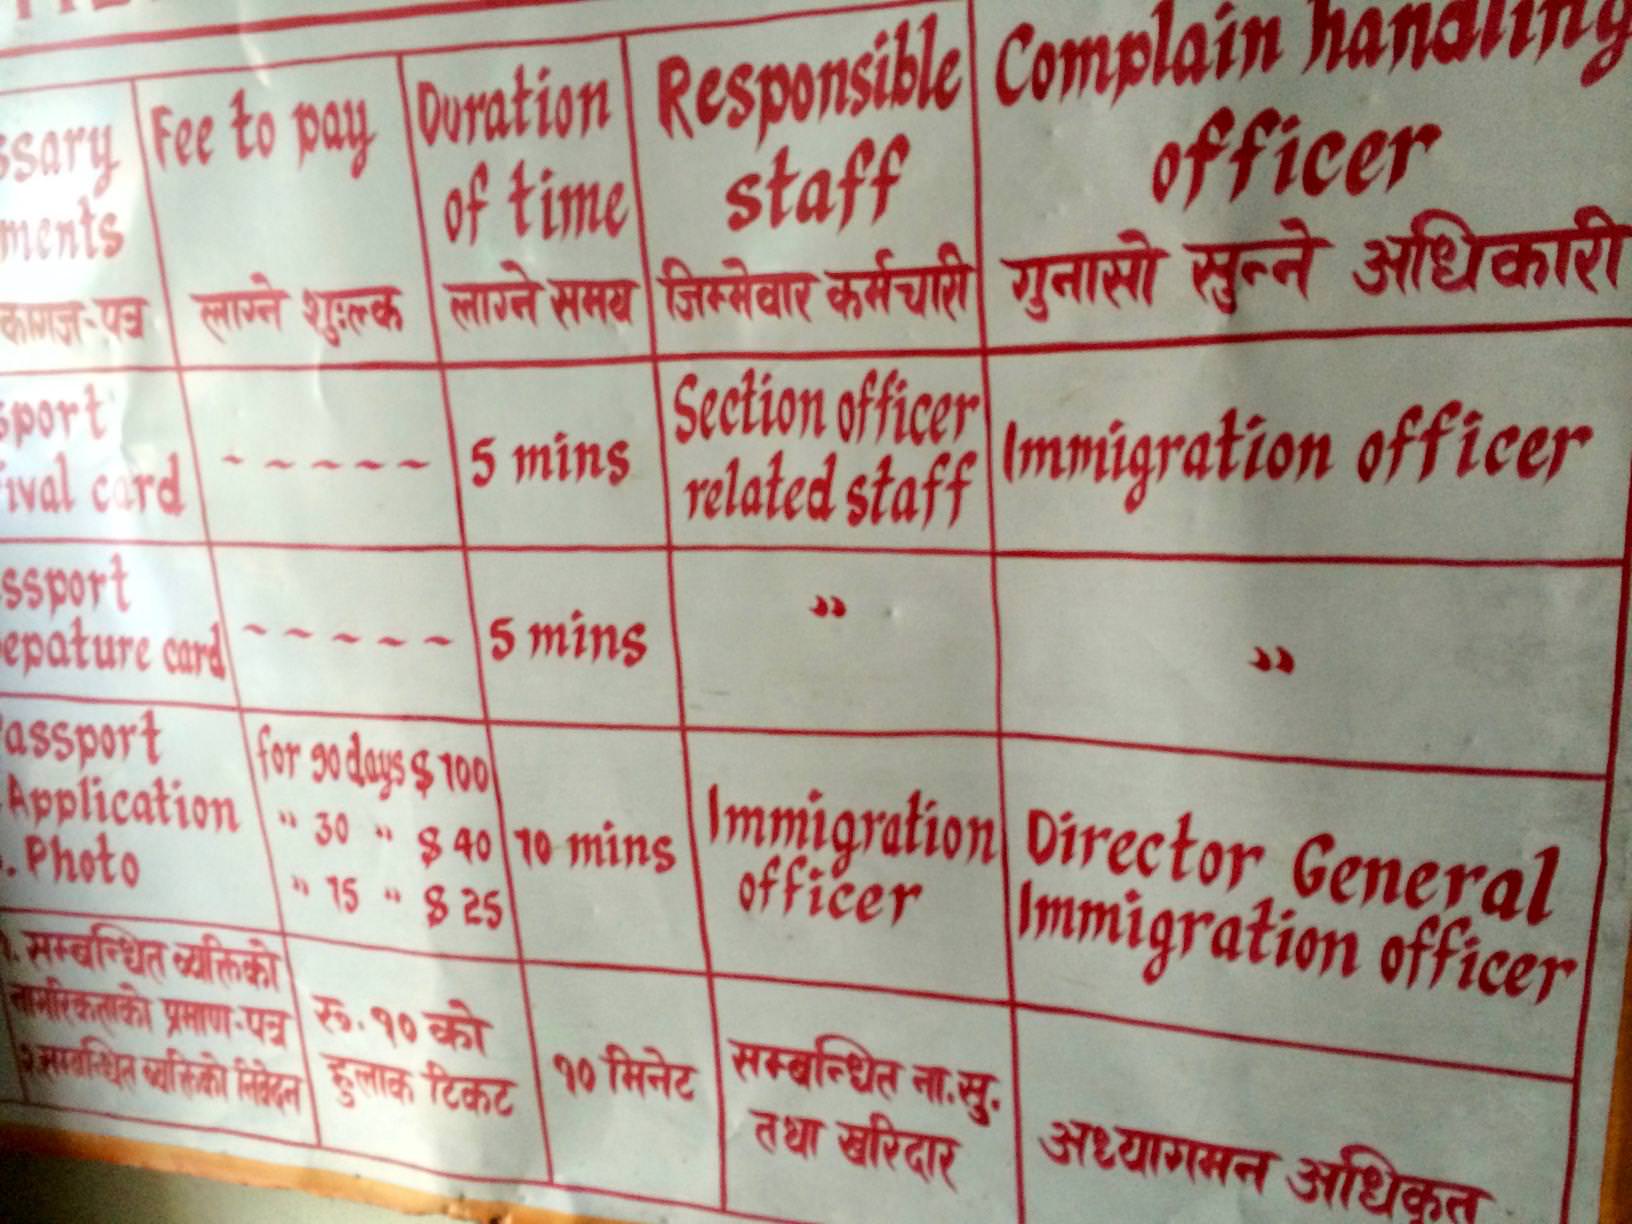 Fee to pay
लाग्ने शुःल्क
Duration
of time
लाग्ने समय
Responsible
staff
जिम्मेवार कर्मचारी
Complain handling
officer
गुनासो सुन्ने अधिकारी
ssary
ments
कागज-पत्र
sport
ival card
~ ~ ~ ~ ~
5 mins
Section officer
related staff
Immigration officer
ssport
epature card
~ ~ ~ ~ ~
5 mins
"
"
assport
Application
Photo
for 90 days $ 100
" 30 " $ 40
" 15 " $ 25
10 mins
Immigration
officer
Director General
Immigration officer
१. सम्बन्धित व्यक्तिको
नागरिकताको प्रमाण-पत्र
२. सम्बन्धित व्यक्तिको निवेदन
रु. १० को
हुलाक टिकट
१० मिनेट
सम्बन्धित ना.सु.
तथा खरिदार
अध्यागमन अधिकृत